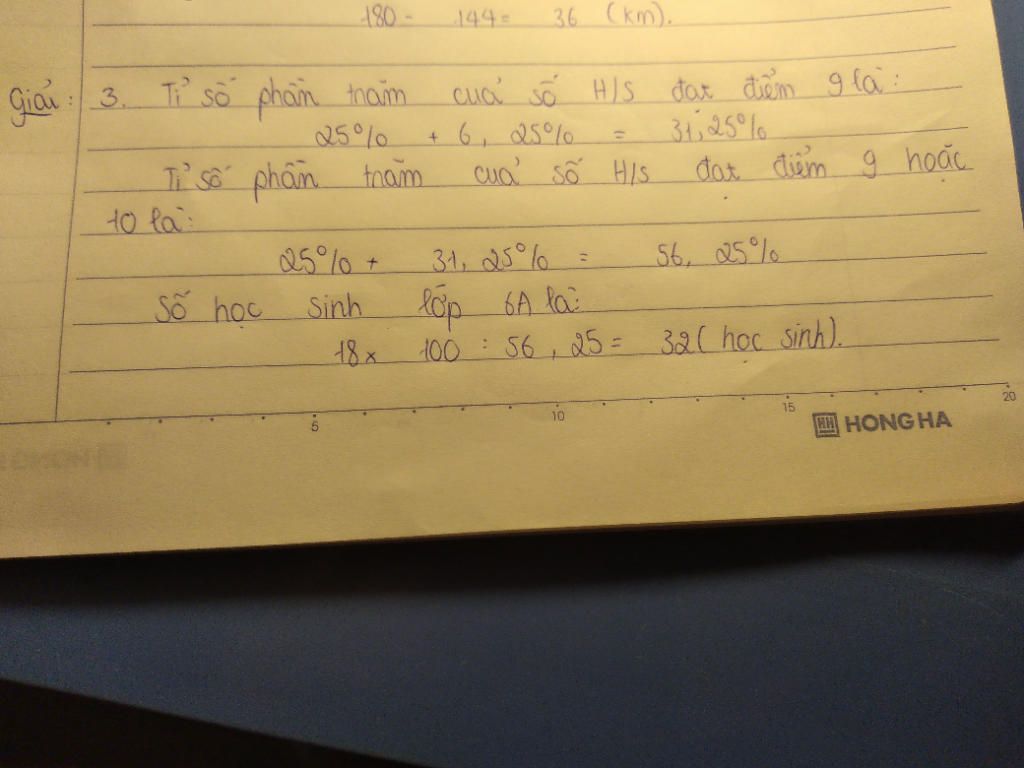 180 - 144 = 36 (km).
Giải: 3. Tỉ số phần trăm của số H/S đạt điểm 9 là:
25% + 6, 25% = 31,25%
Tỉ số phần trăm của số H/S đạt điểm 9 hoặc
10 là:
25% + 31, 25% = 56, 25%
Số học sinh lớp 6A là:
18 x 100 : 56, 25 = 32 ( học sinh).
5 10 15 20
HH HONG HA